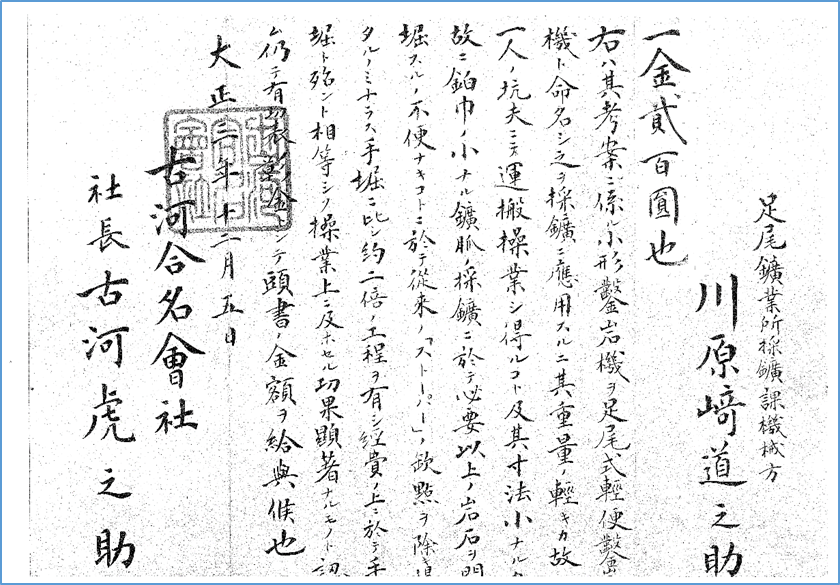 足尾鑛業所採鑛課機械方
川原﨑道之助
一金貳百圓也
右ハ其考案ニ係ル小形鑿岩機ヲ足尾式輕便鑿岩
機ト命名シ之ヲ採鑛ニ應用スルニ其重量ノ輕キカ故
一人ノ坑夫ニテ運搬操業シ得ルコト及其寸法小ナルカ
故ニ鉑巾ノ小ナル鑛脈ノ採鑛ニ於テ必要以上ノ岩石ヲ開
堀スルノ不便ナキコトニ於テ從来ノ「ストーパー」ノ欽點ヲ除
タルノミナラス手堀ニ比シ約二倍ノ工程ヲ有シ經費ノ上ニ於テ手
堀ト殆ント相等シク操業上ニ及ホセル功果顯著ナルモノト認
ム仍テ有功表彰金トシテ頭書ノ金額ヲ給與候也
大正三年十二月五日
古河合名會社
社長古河虎之助